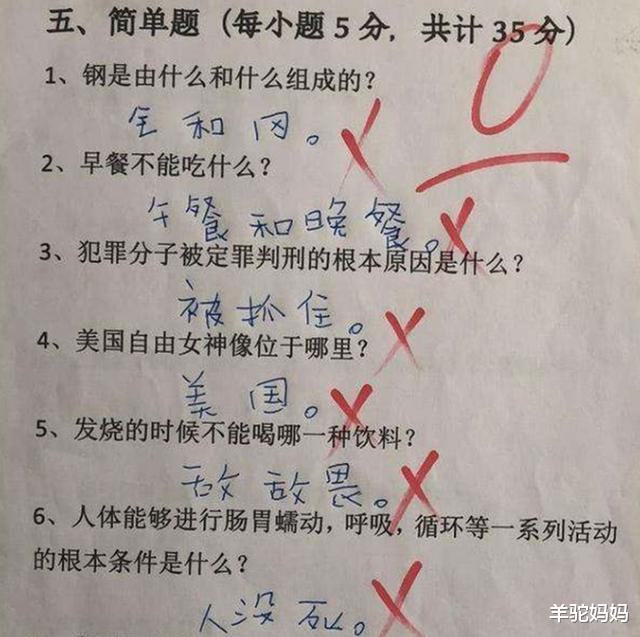 五、简单题（每小题5分，共计35分）
0
1、钢是由什么和什么组成的？
钅和冈。
2、早餐不能吃什么？
午餐和晚餐。
3、犯罪分子被定罪判刑的根本原因是什么？
被抓住。
4、美国自由女神像位于哪里？
美国。
5、发烧的时候不能喝哪一种饮料？
敌敌畏。
6、人体能够进行肠胃蠕动，呼吸，循环等一系列活动
的根本条件是什么？
人没死。
羊驼妈妈